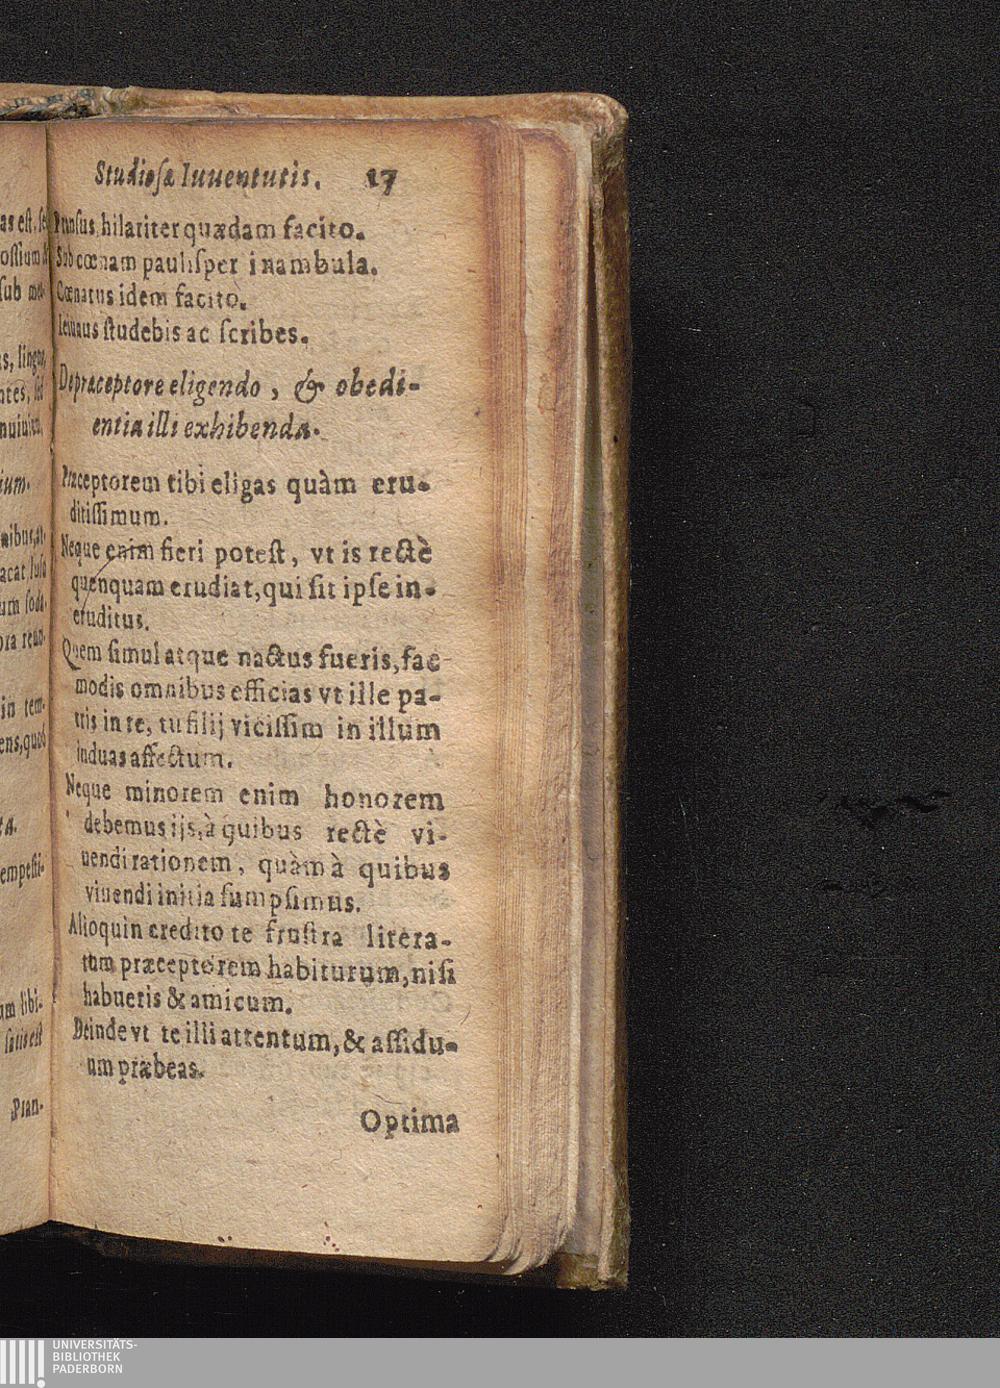 Studiosæ Iuuentutis. 17
Pransus, hilariter quædam facito.
Sub cœnam paulisper inambula.
Cœnatus idem facito.
Ieiunus studebis ac scribes.
De præceptore eligendo, & obedi-
entia illi exhibenda.
Præceptorem tibi eligas quàm eru-
ditissimum.
Neque enim fieri potest, vt is rectè
quenquam erudiat, qui sit ipse in-
eruditus.
Quem simul atque nactus fueris, fac
modis omnibus efficias vt ille pa-
tris in te, tu filij vicissim in illum
induas affectum.
Neque minorem enim honorem
debemus ijs, à quibus rectè vi-
uendi rationem, quàm à quibus
viuendi initia sumpsimus.
Alioquin credito te frustra litera-
tum præceptorem habiturum, nisi
habueris & amicum.
Deinde vt te illi attentum, & assidu-
um præbeas.
Optima
as est, se
ossium
sub
as, lingua,
ntes, sed
ium.
nibus,
acat,
um
in tem-
ens, quod
ta.
empesti-
um libi-
satis est
Pran-
UNIVERSITÄTS-
BIBLIOTHEK
PADERBORN